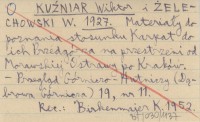 O KUŹNIAR Wiktor i ŻELE-
CHOWSKI W. 1927. Materiały do
poznania stosunku Karpat do
ich Przedgórza na przestrzeni od
Morawskiej Ostrawy po Kraków.
- Przegląd Górniczo-Hutniczy (Dą-
browa Górnicza) 19, nr 11.
Rec.: Birkenmajer K. 1952.